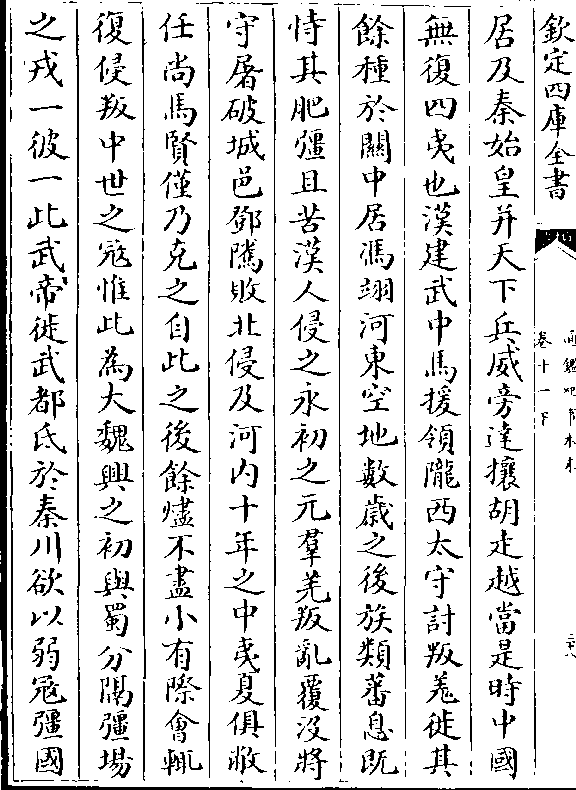 欽定四庫全書
通鑑紀事本末
卷十一下
居及秦始皇并天下兵威旁達攘胡走越當是時中國
無復四夷也漢建武中馬援領隴西太守討叛羌徙其
餘種於關中居馮翊河東空地數歲之後族類蕃息既
恃其肥彊且苦漢人侵之永初之元羣羌叛亂覆没將
守屠破城邑鄧隲敗北侵及河内十年之中夷夏俱敝
任尚馬賢僅乃克之自此之後餘燼不盡小有際會輒
復侵叛中世之冦惟此為大魏興之初與蜀分隔疆場
之戎一彼一此武帝徙武都氐於秦川欲以弱冦彊國